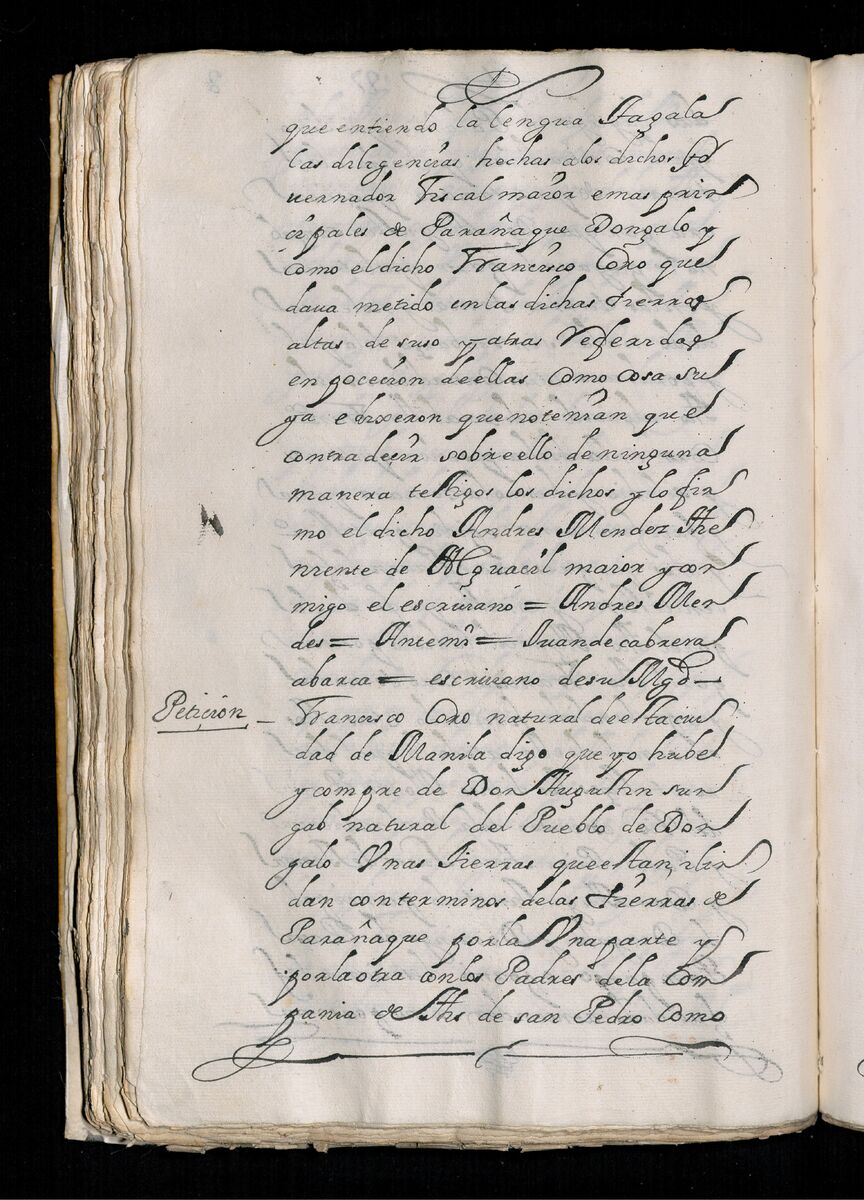 que entiendo la lengua Tagala
las diligencias hechas a los dichos Go
uernador Fiscal maior e mas prin
cipales de Parañaque Dongalo y
como el dicho Francisco Coxo que
daua metido en las dichas tierras
altas de suso y atras Referidas
en pocecion de ellas como cosa su
ya e dixeron que no tenian que
contradecir sobre ello de ninguna
manera testigos los dichos y lo fir
mo el dicho Andres Mendez The
niente de Alguacil maior y con
migo el escriuano = Andres Men
des = Antemi = Juan de cabrera
abarca = escriuano de su Mgd —
Petición — Francisco Coxo natural de esta ciu
dad de Manila digo que yo hube
y compre de Don Augustin sun
gab natural del Pueblo de Don
galo Vnas tierras que estan, i lin
dan con terminos de las tierras de
Parañaque por la Vna parte y
por la otra con los Padres de la Com
pania de Jhs de san Pedro como